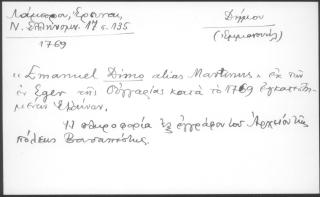 Λάμπρου, Έρευναι,
Ν. Ελληνομν. 17 σ. 135
1769
Δήμου
(Εμμανουήλ)
"Emanuel Dimo alias Martinus" εκ των
εν Eger της Ουγγαρίας κατά το 1769 εγκατεστη-
μένων Ελλήνων.
Η πληροφορία εξ εγγράφου του Αρχείου της
πόλεως Βουδαπέστης.